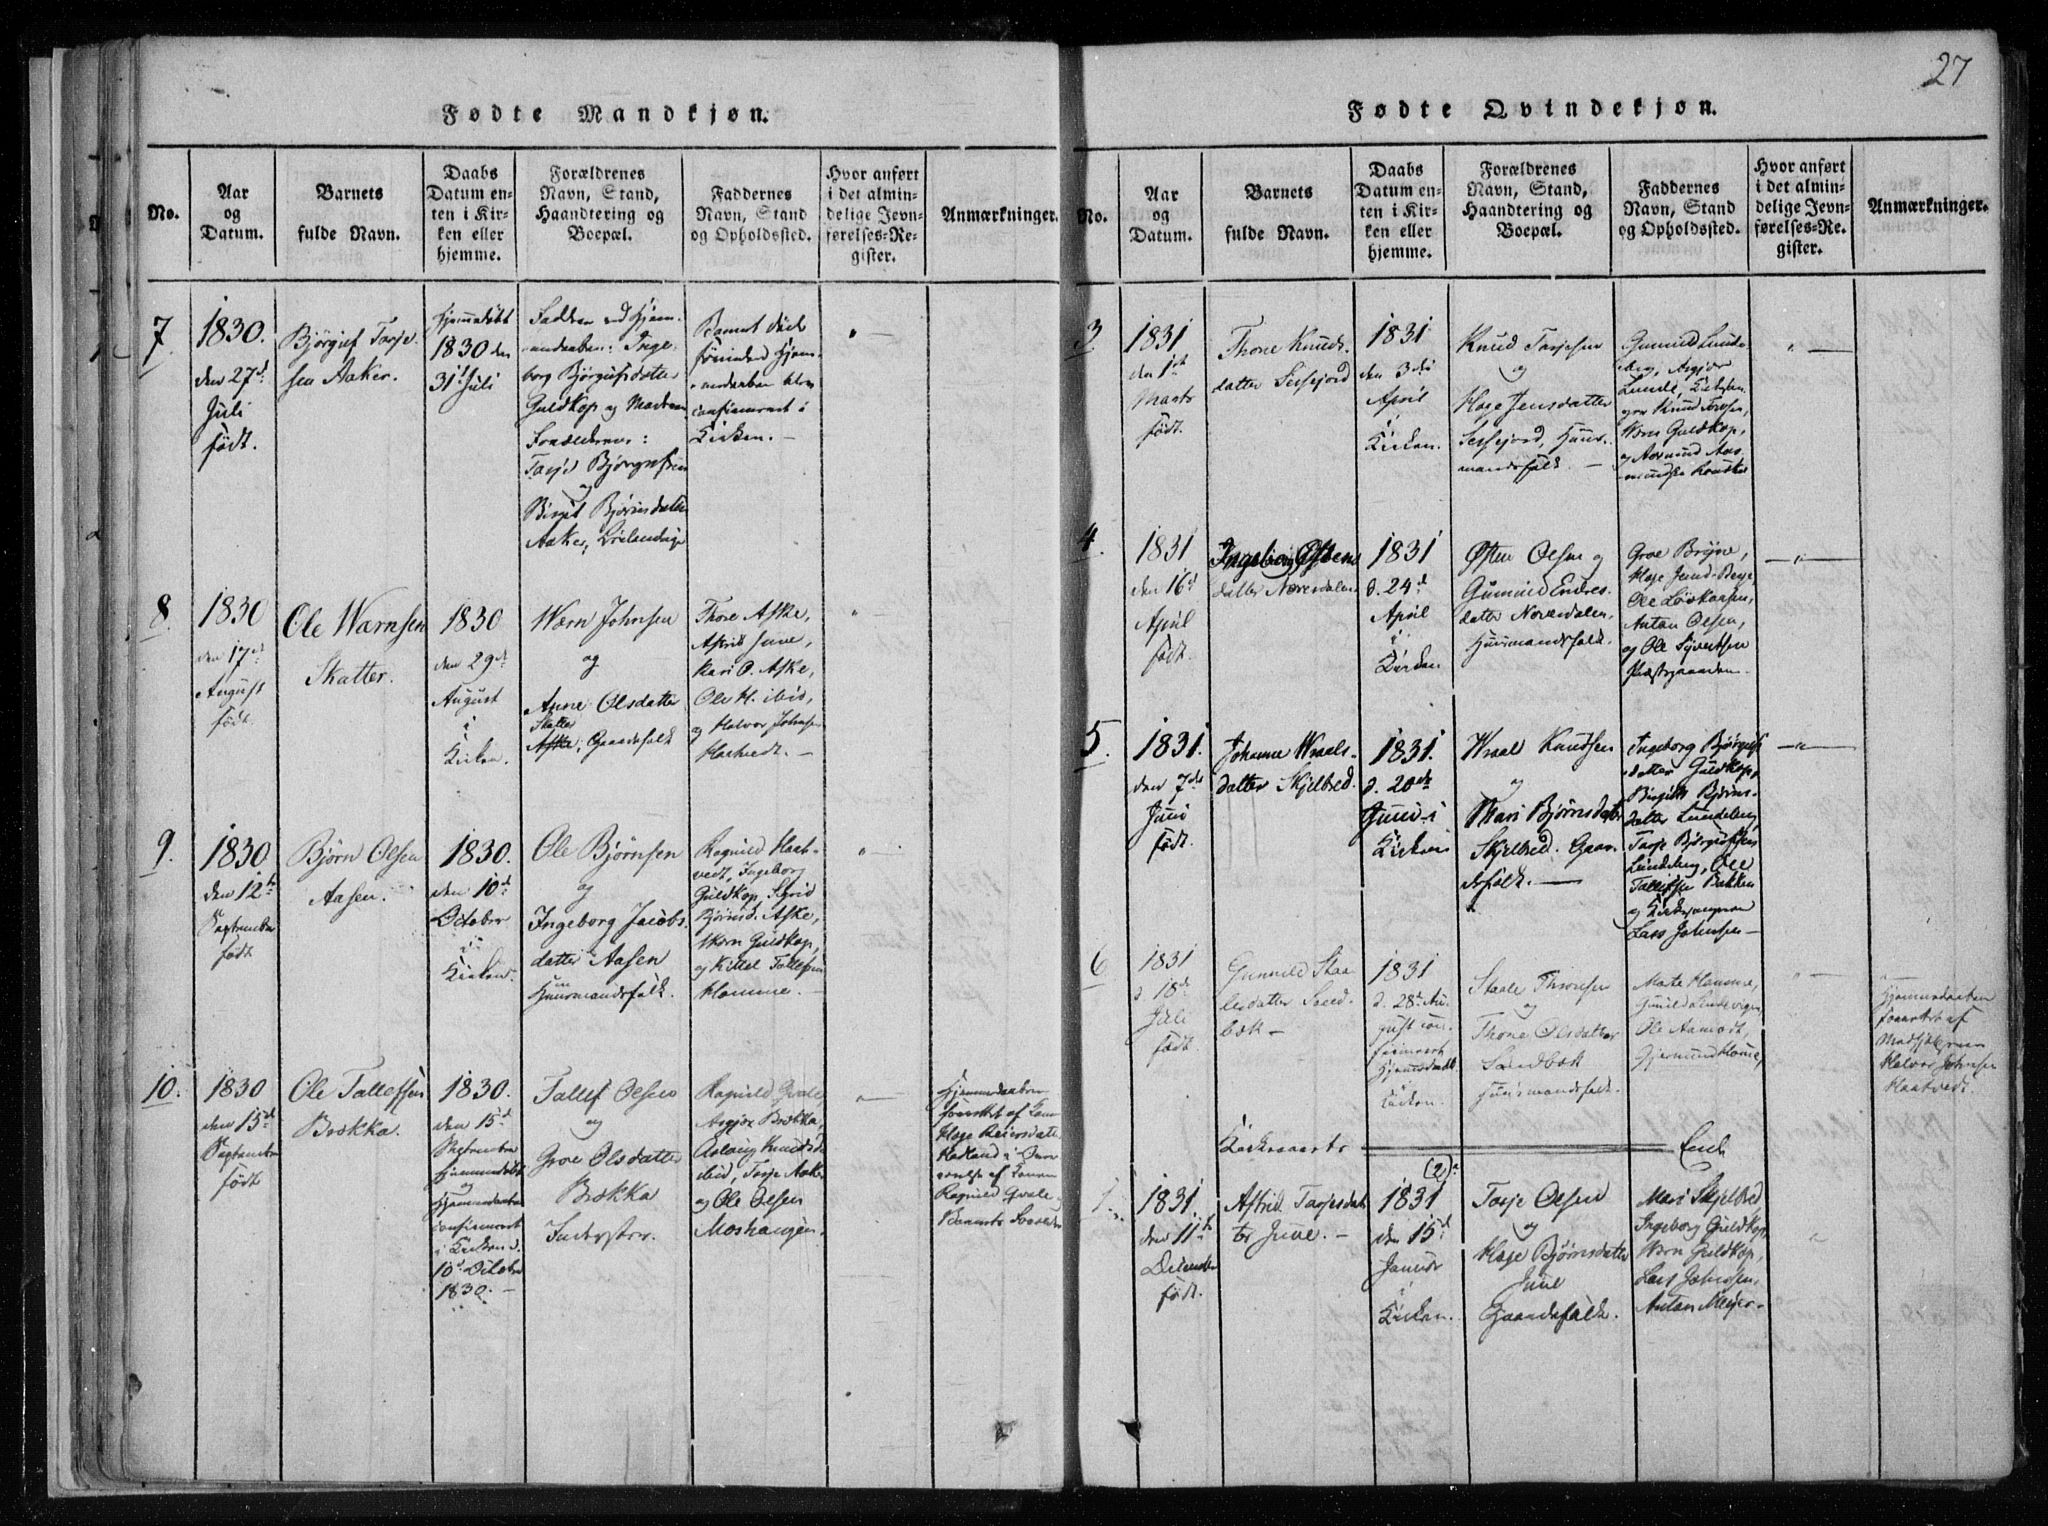 27
Fødte Mandkjøn.
No.
Aar
og
Datum.
Barnets
fulde Navn.
Daabs
Datum en-
ten i Kir-
ken eller
hjemme.
Forældrenes
Navn, Stand,
Haandtering og
Boepæl.
Faddernes
Navn, Stand
og Opholdssted.
Hvor anført
i det almin-
delige Jevn-
førelses-Re-
gister.
Anmærkninger.
7.
1830.
den 27de
Juli
født.
Bjørguf Tarje
sen Aaker.
Hjemmedøbt
1830 den
31te Juli
Inge
borg Bjørgufsdatter
Guldkop og
Forældrene:
Tarje Bjørgufsen
og
Birgit Bjørnsdatter
Aaker,
Barnet død
confirmeret i
Kirken. —
8.
1830
den 17de
August
født.
Ole Wærnsen
Skatter.
1830
den 29de
August
i
Kirken.
Wærn Johnsen
og
Anne Olsdatter
Skatter
Aske, Gaardsfolk
Thore Aske,
Astrid Juve,
Kari O. Aske,
Ole H. ibid,
og Halvor Johnsen
Haatvedt. —
9.
1830
den 12te
Septembr
født
Bjørn Olsen
Aasen.
1830.
den 10de
October
i
Kirken.
Ole Bjørnsen
og
Ingeborg Jacobs
datter Aasen
Huusmandsfolk.
Ragnild Haat-
vedt, Ingeborg
Guldkop, Sigrid
Bjørnsd. Aske,
Wærn Guldkop,
og Kittel Tallefsen
Hamme. —
10.
1830
den 15de
Septembr
født
Ole Tallefsen
Brokka.
1830.
den 15de
Septembr
Hjemmedøbt
og
Hjemmedaaben
confirmeret
i Kirken d.
10de Octobr
1830. —
Tallef Olsen
og
Groe Olsdatter
Brokka
Inderster.
Ragnild Gvale
Asgjer Brokka,
Aslaug Knudsd.
ibid, Tarje Aaker
og Ole Olsen
Moshaugen.
Hjemmedaaben
forrettet af
Hage Reiersdatter
Hadland i Over
værelse af
Ragnild Gvale og
Barnets Forældre
Fødte Qvindekjøn.
No.
Aar
og
Datum.
Barnets
fulde Navn.
Daabs
Datum en-
ten i Kir-
ken eller
hjemme.
Forældrenes
Navn, Stand,
Haandtering og
Boepæl.
Faddernes
Navn, Stand
og Opholdssted.
Hvor anført
i det almin-
delige Jevn-
førelses-Re-
gister.
Anmærkninger.
3.
1831
den 1ste
Marts
født.
Thone Knuds-
datter Seltejord
1831
den 3die
April
i
Kirken.
Knud Tarjesen
og
Hage Jensdatter
Seltejord, Huus-
mandsfolk. —
Gunnild Lunde
Asgjer
Lunde,
Knud
Wærn Guldkop,
og Asmund Aas-
mundsen
4.
1831
den 16de
April
født.
Ingeborg Østens
datter Noresdalen
1831
d. 24de
April
i
Kirken
Østen Olsen og
Gunnild Endres-
datter Noresdalen,
Huusmandsfolk.
Groe Brýne,
Hage
Ole
Antan Olsen,
og Ole Syvertsen
Præstegaarden.
5.
1831.
den 7de
Juni
født.
Johanne Wraals-
datter Skjelbred.
1831.
d. 20de
Juni i
Kirken
Wraal Knudsen
og
Mari Bjørnsdatter
Skjelbred. Gaar-
dsfolk. —
Ingeborg Bjørgufs
datter Guldkop,
Birgitte Bjørns-
datter Lundeberg,
Tarje Bjørgufsen
Lundeberg, Ole
Tallefsen Bakken
og Kirkesangeren
Lars Johnsen —
6
1831
d. 18de
Juli
født
Gunnild Staa
lesdatter Sand-
bæk —
1831
d. 28de Au-
gust con-
firmeret
Hjemmedaab
i
Kirken.
Staale Thronsen
og
Thone Olsdatter
Sandbæk
Huusmandsfolk.
Marte Hamme,
Gunild Lindevigen
Ole Aamodt,
Gjermund Homme,
Hjemmedaaben
forrettet af
Halvor Johnsen
Haatvedt.
Kirkeaarets
End
(2)
1.
1831.
den 11te
December
født.
Astrid Tarjesdat-
ter Juve. —
1831
den 15de
Januar
i
Kirken.
Tarje Olsen
og
Hage Bjørnsdatter
Juve
Gaardsfolk.
Mari Skjelbred,
Ingeborg Guldkop,
Wærn Guldkop,
Lars Johnsen,
Antan Meyer.